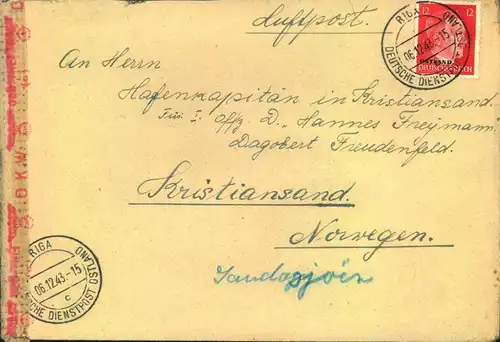 Luftpost.
12 12
OSTLAND
DEUTSCHES REICH
RIGA
06.12.43.-15
DEUTSCHE DIENSTPOST OSTLAND
An Herrn
Hafenkapitän in Kristiansand
Für I. Offz. D. „Hannes Freymann"
Dagobert Freudenfeld.
Kristiansand.
Norwegen.
RIGA
06.12.43.-15
c
DEUTSCHE DIENSTPOST OSTLAND
O.K.W.